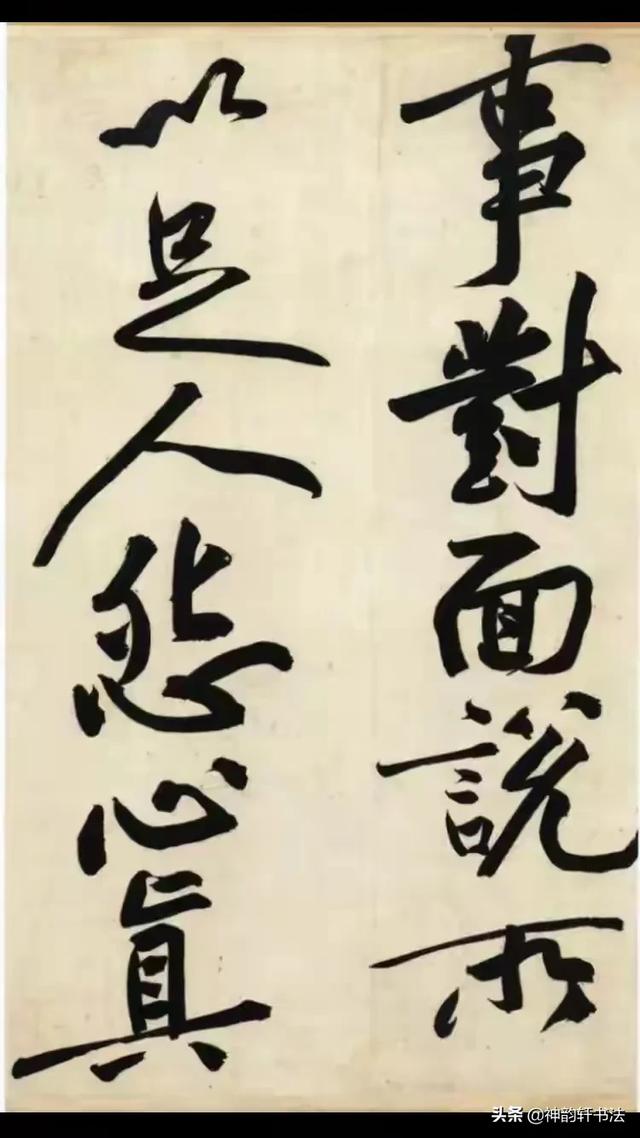 事對面說所
以足人怨心真
头条 @神韵轩书法